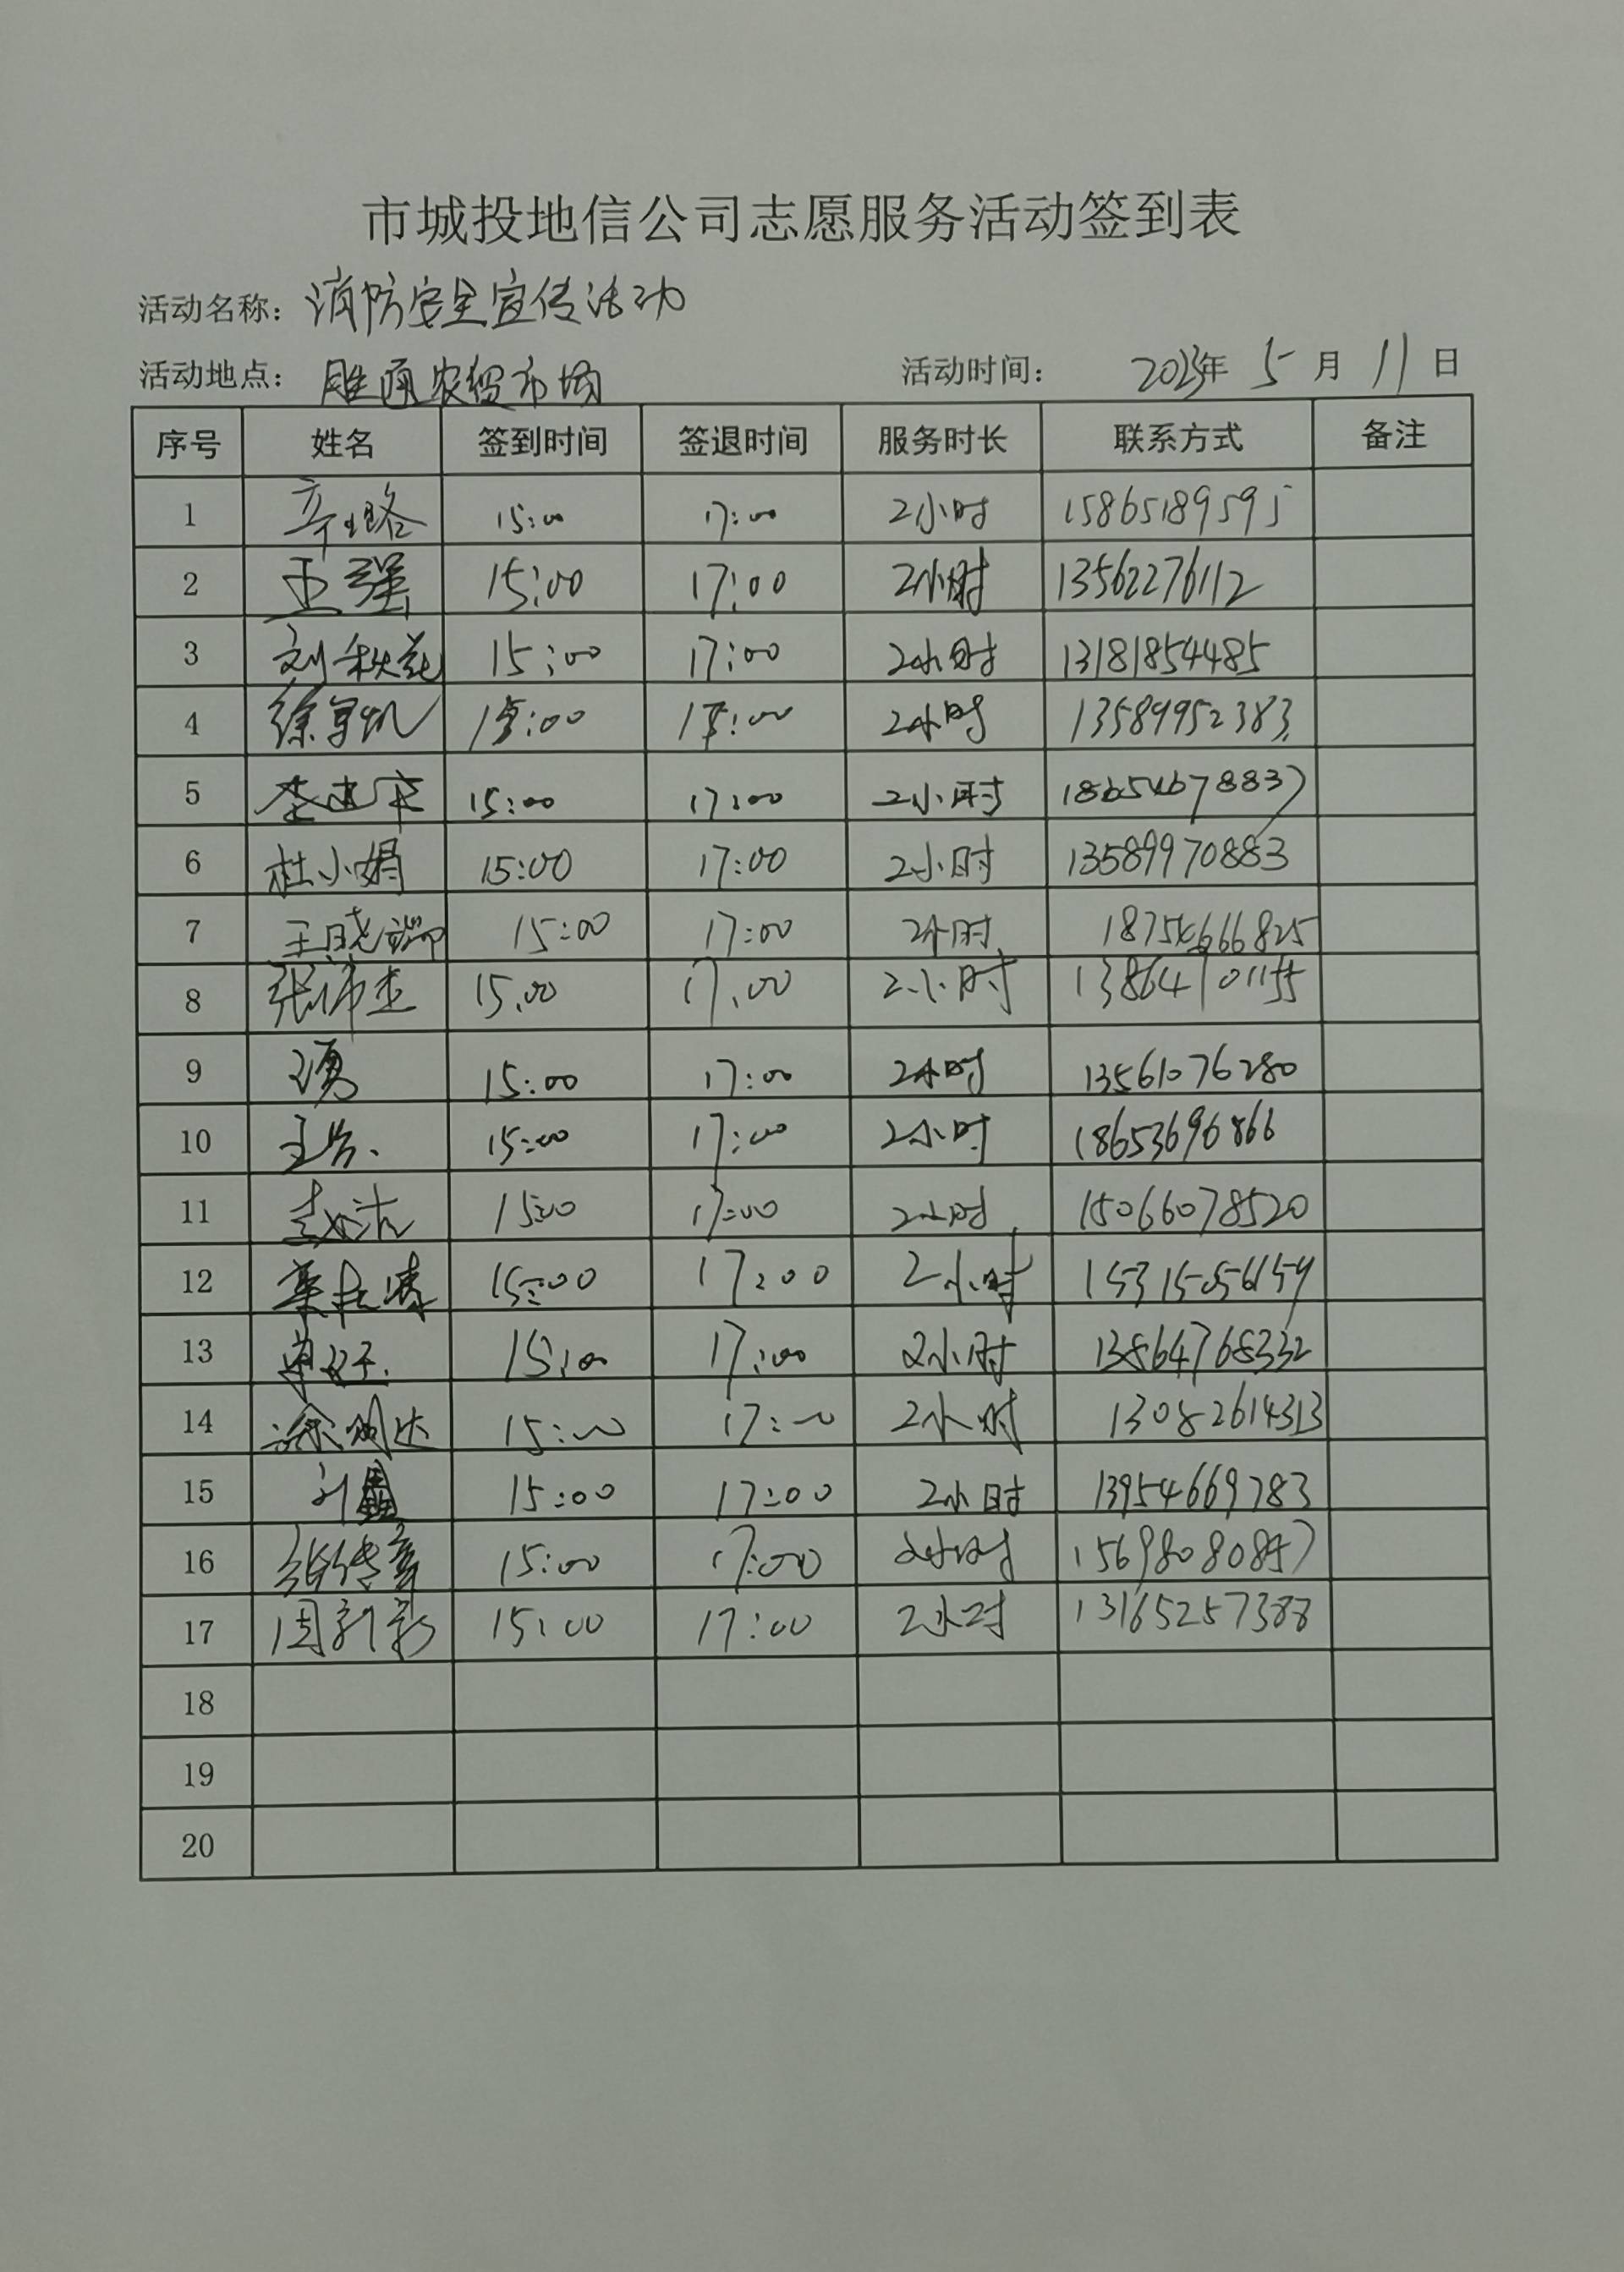 市城投地信公司志愿服务活动签到表
活动名称：消防安全宣传活动
活动地点：胜通农贸市场 活动时间： 2023年 5 月 11 日
序号 姓名 签到时间 签退时间 服务时长 联系方式 备注
1 15:00 17:00 2小时 15865189595
2 王强 15:00 17:00 2小时 13562276112
3 刘秋花 15:00 17:00 2小时 13181854485
4 15:00 17:00 2小时 13589952383
5 15:00 17:00 2小时 18654678837
6 杜小娟 15:00 17:00 2小时 13589970883
7 王晓瑞 15:00 17:00 2小时 18754666825
8 15:00 17:00 2小时
9 15:00 17:00 2小时 13561076280
10 15:00 17:00 2小时 18653696866
11 15:00 17:00 2小时 15066078520
12 15:00 17:00 2小时 15315056159
13 15:00 17:00 2小时 13864768332
14 15:00 17:00 2小时 13082614313
15 15:00 17:00 2小时 13954669783
16 15:00 17:00 2小时 15698080857
17 15:00 17:00 2小时 13165257388
18
19
20